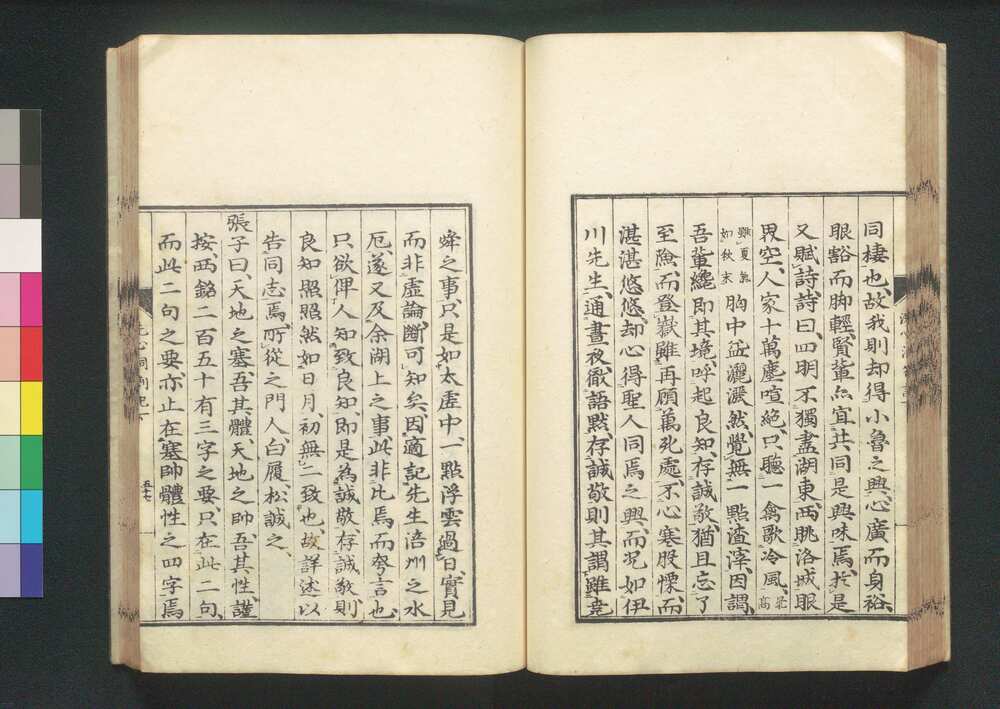 同棲也、故我則却得小魯之興、心廣而身裕、
眼豁而脚輕、賢輩亦宜共同是興味焉、於是
又賦詩、詩曰、四明不獨盡湖東、西眺洛城眼
界空、人家十萬塵喧絶、只聽一禽歌冷風、
雖夏氣
如秋末
胸中益灑灑然、覺無一點渣滓、因謂、
吾輩纔即其境、呼起良知、存誠敬、猶且忘了
至險、而登嶽雖再顧萬死處、不心寒股慄、而
湛湛悠悠、却心得聖人同焉之興、而況如伊
川先生、通晝夜、徹語默、存誠敬、則其謂雖堯
舜之事、只是如太虛中一點浮雲過目、實見
而非虛論、斷可知矣、因適記先生涪州之水
厄、遂又及余湖上之事、此非比焉而夸言也、
只欲俾人知致良知、即是為誠敬、存誠敬、則
良知照照然如日月、初無二致也、故詳述以
告同志焉、所從之門人、白履、松誠之、
張子曰、天地之塞、吾其體、天地之帥、吾其性、謹
按、西銘二百五十有三字之要、只在此二句、
而此二句之要、亦止在塞帥體性之四字焉
五十七